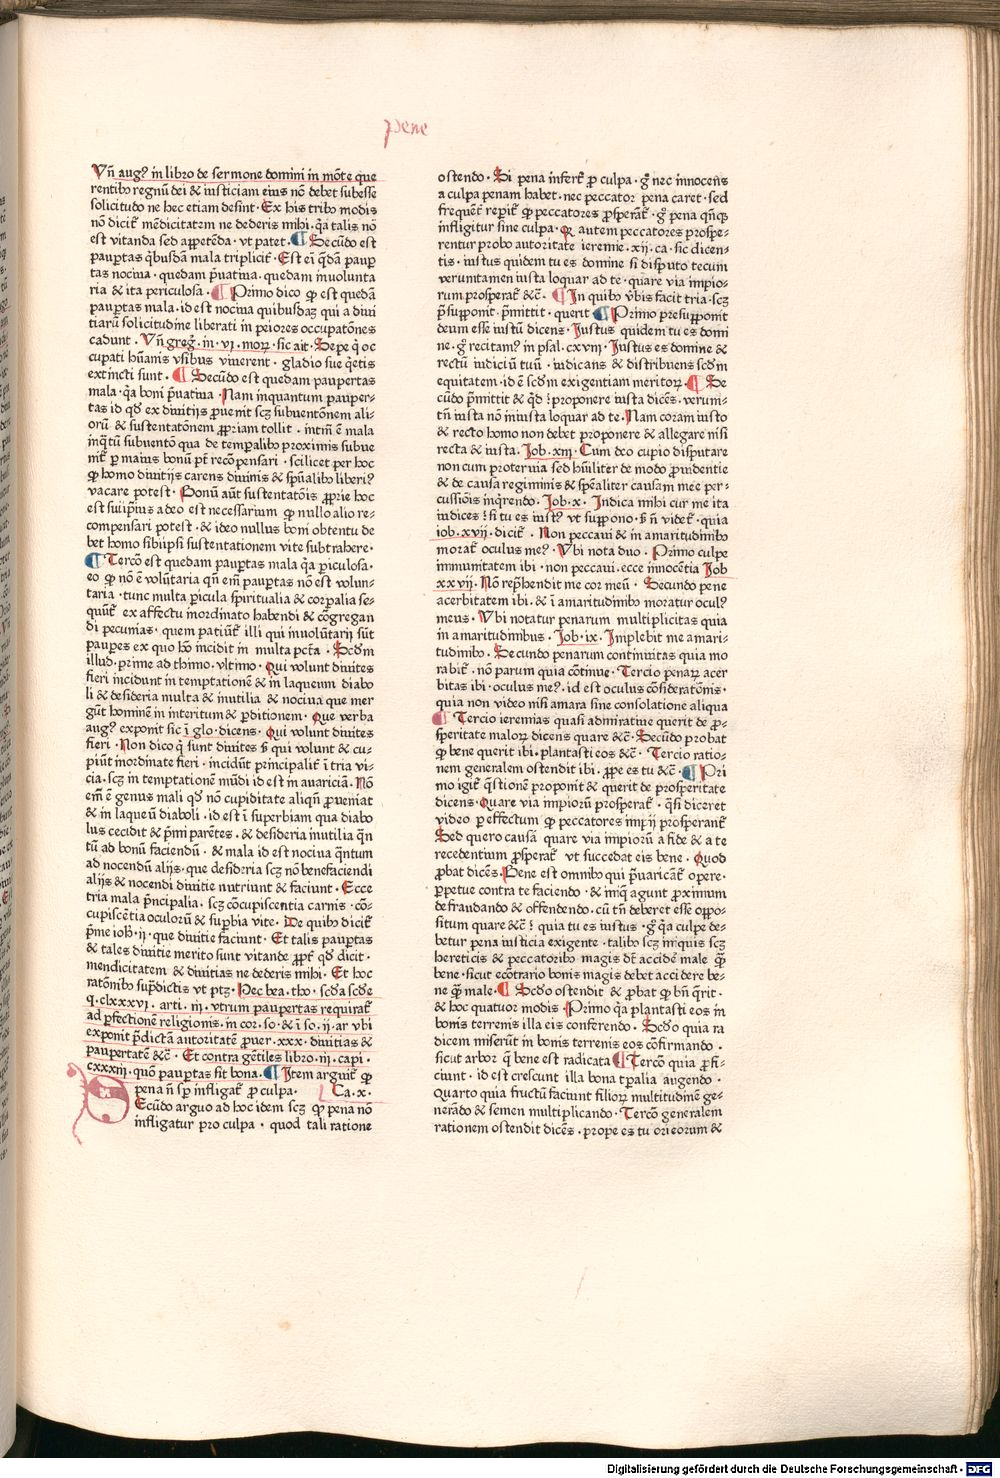 pene
Vñ aug⁹ in libro de sermone domini in mōte que
rentibꝰ regnū dei & iusticiam eius nō debet subesse
solicitudo ne hec etiam desint · Ex his tribꝰ modis
nō dicit᷑ mēdicitatem ne dederis mihi · q̄a talis nō
est vitanda sed appetēda · vt patet · ¶ Secūdo est
paup̄tas q̄busdā mala triplicit᷑ · Est eī q̄dā paup̄
tas nociua · quedam p̄uatiua · quedam inuolunta
ria & ita periculosa · ¶ Primo dico ꝙ est quedā
paup̄tas mala · id est nociua quibusdaȝ qui a diui
tiarū solicitudine liberati in peiores occupatōnes
cadunt · Vñ greg᷑ · in · vi · moꝝ · sic ait · Sepe q̄ oc
cupati hūanis vsibus viuerent · gladio sue q̄etis
extincti sunt · ¶ Secūdo est quedam paupertas
mala · q̄a boni p̄uatiua · Nam inquantum pauper-
tas id qd̄ ex diuitijs ꝓuenit scȝ subuentōnem ali-
orū & sustentatōnem ꝓpriam tollit · intm̄ ē mala
inq̄tū subuentō qua de tempalibꝰ proximis subue
nit᷑ ꝑ maius bonū pt̄ recōpensari · scilicet per hoc
ꝙ homo diuitijs carens diuinis & spūalibꝰ liberi⁹
vacare potest · Bonū aūt sustentatōis ꝓprie hoc
est suiipius adeo est necessarium ꝙ nullo alio re-
compensari potest · & ideo nullus boni obtentu de
bet homo sibiipsi sustentationem vite subtrahere ·
¶ Tercō est quedam paup̄tas mala q̄a ꝑiculosa ·
eo ꝙ nō ē volūtaria qn̄ em̄ paup̄tas nō est volun-
taria · tunc multa ꝑicula spiritualia & corꝑalia se-
quūt᷑ ex affectu inordinato habendi & cōgregan
di pecunias · quem patiūt᷑ illi qui inuolūtarij sūt
paupes ex quo hō incidit in multa pctā · Scd̄m
illud · prime ad thimo · vltimo · Qui volunt diuites
fieri incidunt in temptationē & in laqueum diabo
li & desideria multa & inutilia & nociua que mer
gūt hominē in interitum & ꝑditionem · Que verba
aug⁹ exponit sic ī glo · dicens · Qui volunt diuites
fieri · Non dico q̄ sunt diuites s̄ qui volunt & cu-
piūt inordinate fieri · incidūt principalit᷑ ī tria vi-
cia · scȝ in temptationē mūdi id est in auariciā · Nō
em̄ ē genus mali qd̄ nō cupiditate aliqn̄ ꝓueniat
& in laqueū diaboli · id est ī superbiam qua diabo
lus cecidit & p̄mi parētes · & desideria inutilia q̄n
tū ad bonū faciendū · & mala id est nociua q̄ntum
ad nocendū alijs · que desideria scȝ nō benefaciendi
alijs & nocendi diuitie nutriunt & faciunt · Ecce
tria mala p̄ncipalia · scȝ cōcupiscentia carnis · cō-
cupiscētia oculorū & suꝑbia vite · De quibꝰ dicit᷑
p̄me ioh̄ · ij · que diuitie faciunt · Et talis paup̄tas
& tales diuitie merito sunt vitande ꝓpt᷑ qd̄ dicit ·
mendicitatem & diuitias ne dederis mihi · Et hoc
ratōnibꝰ sup̄dictis vt ptȝ · Nec bea · tho · scd̄a scd̄e
q · clxxxvi · arti · iij · vtrum paupertas requirat᷑
ad ꝑfectionē religionis · in cor · so · & ī so · ij · ar vbi
exponit p̄dictā autoritatē ꝓuer · xxx · diuitias &
paupertatē &c̄ · Et contra gētiles libro · iij · capi ·
cxxxiij · quō paup̄tas sit bona · ¶ Item arguit᷑ ꝙ
pena ñ sp̄ infligat᷑ ꝓ culpa · Ca · x ·
SEcūdo arguo ad hoc idem scȝ ꝙ pena nō
infligatur pro culpa · quod tali ratione
ostendo · Si pena infert᷑ ꝓ culpa · g̊ nec innocens
a culpa penam habet · nec peccator pena caret · sed
frequēt᷑ reꝑit᷑ ꝙ peccatores ꝓsperāt᷑ · g̊ pena qn̄qꝫ
infligitur sine culpa · Ꝙ autem peccatores prospe-
rentur probo autoritate ieremie · xij · ca · sic dicen-
tis · iustus quidem tu es domine si disputo tecum
veruntamen iusta loquar ad te · quare via impio-
rum prosperat᷑ &c̄ · ¶ In quibꝰ v̄bis facit tria · scȝ
p̄supponit · p̄mittit · querit ¶ Primo presupponit
deum esse iustū dicens · Justus quidem tu es domi
ne · g̊ recitam⁹ in psal · cxviij · Justus es domine &
rectū iudiciū tuū · iudicans & distribuens scd̄m
equitatem · id ē scd̄m exigentiam meritoꝝ · ¶ Se
cūdo p̄mittit & qd̄ ꝓponere iusta dicēs · verum-
tñ iusta nō iniusta loquar ad te · Nam coram iusto
& recto homo non debet proponere & allegare nisi
recta & iusta · Job · xiij · Cum deo cupio disputare
non cum proteruia sed hūiliter de modo ꝓuidentie
& de causa regiminis & spēaliter causam mee per-
cussiōis inq̄rendo · Job · x · Indica mihi cur me ita
iudices si tu es iust⁹ vt suppono · s̄ ñ videt᷑ · quia
iob · xvij · dicit᷑ · Non peccaui & in amaritudinibꝰ
morat᷑ oculus me⁹ · Vbi nota duo · Primo culpe
immunitatem ibi · non peccaui · ecce innocētia Job
xxvij · Nō rep̄hendit me cor meū · Secundo pene
acerbitatem ibi · & ī amaritudinibꝰ moratur ocul⁹
meus · Vbi notatur penarum multiplicitas quia
in amaritudinibus · Job · ix · Impleuit me amari-
tudinibꝰ · Secundo penarum continuitas quia mo
rabit᷑ · nō parum quia cōtinue · Tercio penaꝝ acer
bitas ibi · oculus me⁹ · id est oculus cōsideratōnis ·
quia non video nisi amara sine consolatione aliqua
¶ Tercio ieremias quasi admiratiue querit de ꝓ-
speritate maloꝝ dicens quare &c̄ · Secūdo probat
ꝙ bene querit ibi · plantasti eos &c̄ · Tercio ratio-
nem generalem ostendit ibi · ꝓpe es tu &c̄ · ¶ Pri
mo igit᷑ q̄stionē proponit & querit de prosperitate
dicens · Quare via impiorū prosperat᷑ · q̄si diceret
video ꝑ effectum ꝙ peccatores impij prosperant᷑
Sed quero causā quare via impiorū a fide & a te
recedentium ꝓsperat᷑ vt succedat eis bene · Quod
ꝓbat dicēs · Bene est omnibꝰ qui p̄uaricāt᷑ opere ·
ꝑpetue contra te faciendo · & iniq̄ agunt ꝓximum
defraudando & offendendo · cū tñ deberet esse oppo-
situm quare &c̄ quia tu es iustus · g̊ q̄a culpe de-
betur pena iusticia exigente · talibꝰ scȝ iniquis scȝ
hereticis & peccatoribꝰ magis dt᷑ accidē male ꝙ̄
bene · sicut ecōtrario bonis magis debet accidere be-
ne ꝙ̄ male · ¶ Scd̄o ostendit & ꝓbat ꝙ bñ q̄rit ·
& hoc quatuor modis · Primo q̄a plantasti eos in
bonis terrenis illa eis conferendo · Scd̄o quia ra
dicem miserūt in bonis terrenis eos cōfirmando ·
sicut arbor q̄ bene est radicata ¶ Tercō quia ꝓfi-
ciunt · id est crescunt illa bona tꝑalia augendo ·
Quarto quia fructū faciunt filioꝝ multitudinē ge-
nerādo & semen multiplicando · Tercō generalem
rationem ostendit dicēs · prope es tu ori eorum &
Digitalisierung gefördert durch die Deutsche Forschungsgemeinschaft · DFG